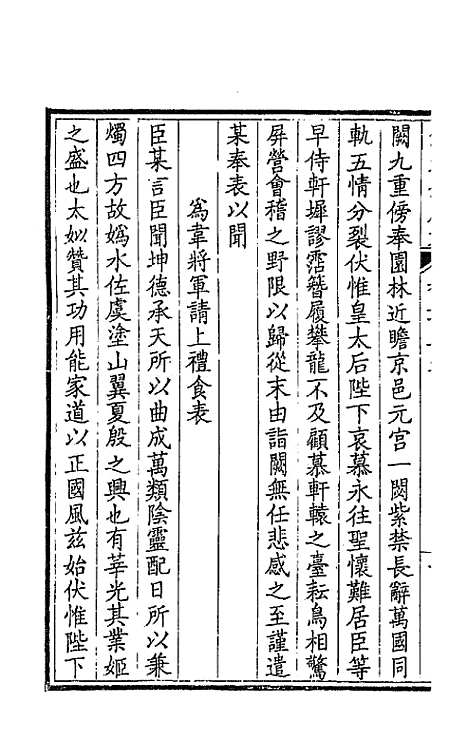 闕九重傍奉園林近瞻京邑元宫一閟紫禁長辭萬國同
軌五情分裂伏惟皇太后陛下哀慕永往聖懷難居臣等
早侍軒墀謬霑簪履攀龍不及顧慕軒轅之臺耘鳥相驚
屏營會稽之野限以歸從末由詣闕無任悲感之至謹遣
某奉表以聞
爲韋將軍請上禮食表
臣某言臣聞坤德承天所以曲成萬類陰靈配日所以兼
燭四方故嬀水佐虞塗山翼夏殷之興也有莘光其業姬
之盛也太姒贊其功用能家道以正國風兹始伏惟陛下